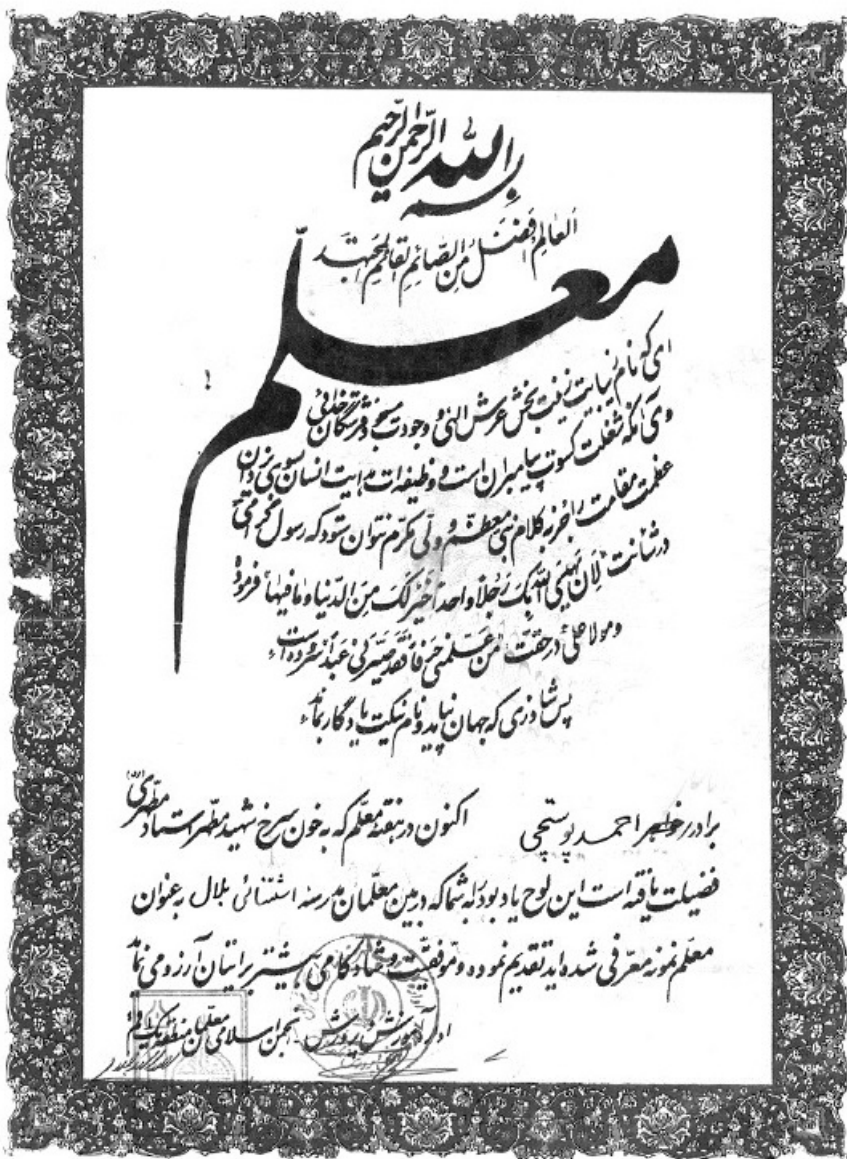 بسم الله الرحمن الرحیم
العالم افضل من الصائم القائم المجتهد
معلم
ای که نام زیبایت زینت بخش عرش الهی و وجودت مسجود فرشتگان خدائی
وی آنکه شغلت کسوت پیامبران است و وظیفه ات هدایت انسان بسوی یزدان
عظمت مقامت را جز به کلام نبی معظم و ولی مکرم نتوان ستود که رسول گرامی
در شانت لان یهدی الله بک رجلا واحدا خیر لک من الدنیا و ما فیها فرمود
و مولا علی در حقت من علمنی حرفا فقد صیرنی عبدا فرموده است
پس شاد زی که جهان نپاید و نام نیکت یادگار بماند
برادر خواهر احمد پوستچی اکنون در هفته معلم که به خون سرخ شهید مطهر استاد مطهری
فضیلت یافته است این لوح یادبود را به شما که در بین معلمان مدرسه استثنائی بلال به عنوان
معلم نمونه معرفی شده اید تقدیم نموده و موفقیت و شادکامی بیشتر برایتان آرزو می نماید
اداره آموزش و پرورش - انجمن اسلامی معلمان منطقه یک